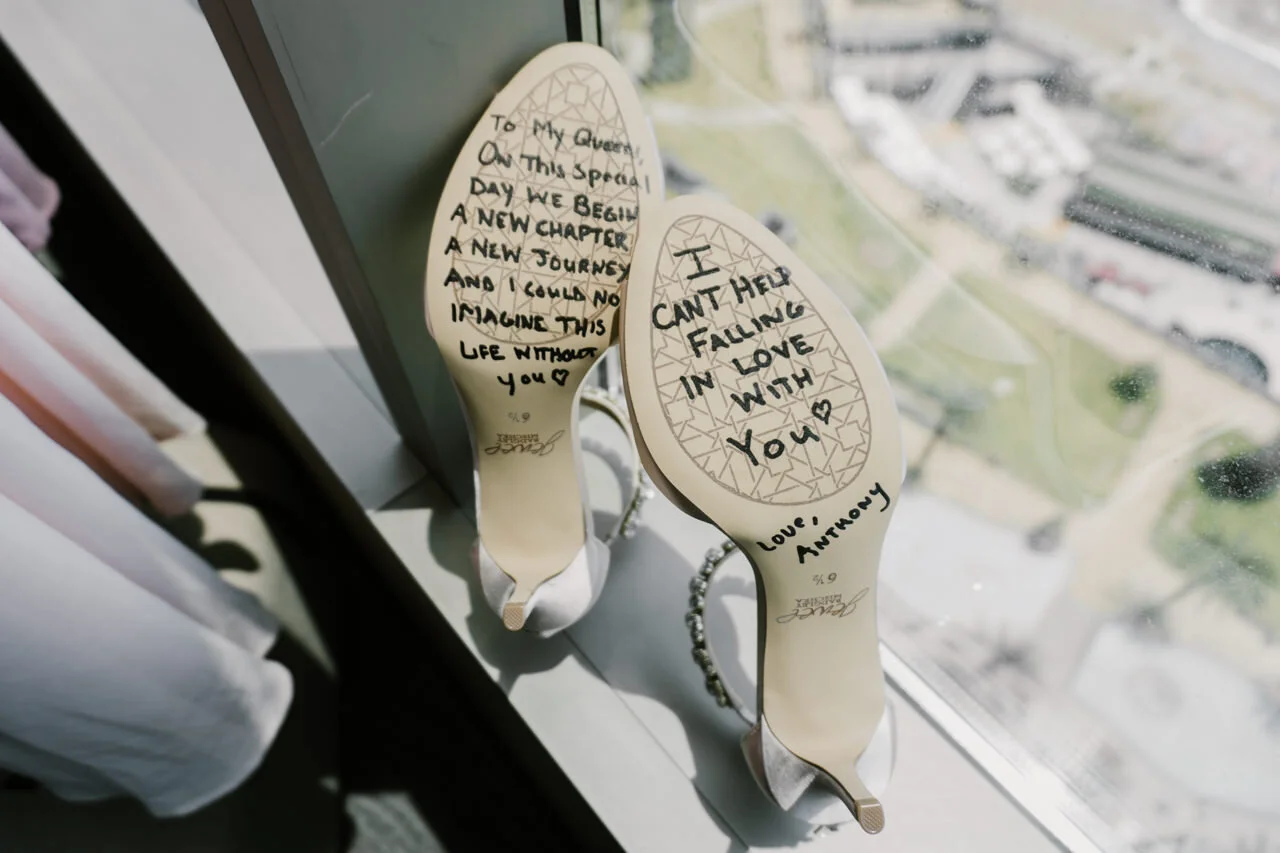 To My Queen,
On This Special
Day We Begin
A New Chapter
A New Journey
And I Could No
Imagine This
Life Without
you♡
6½
Jewel
BADGLEY
MISCHKA
I
CANT HELP
FALLING
IN LOVE
WITH
You♡
Love,
Anthony
6½
Jewel
BADGLEY
MISCHKA